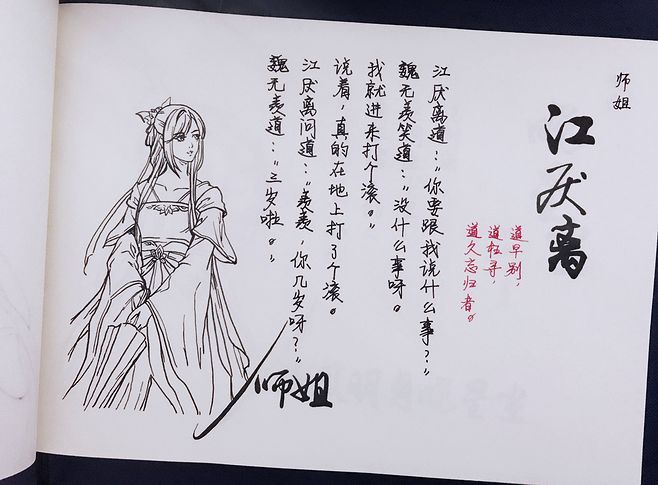 师姐
江厌离
道早别，
道轻寻，
道久忘归者。
江厌离道：“你要跟我说什么事？”
魏无羡笑道：“没什么事呀。
我就进来打个滚。”
说着，真的在地上打了个滚。
江厌离问道：“羡羡，你几岁呀？”
魏无羡道：“三岁啦。”
师姐